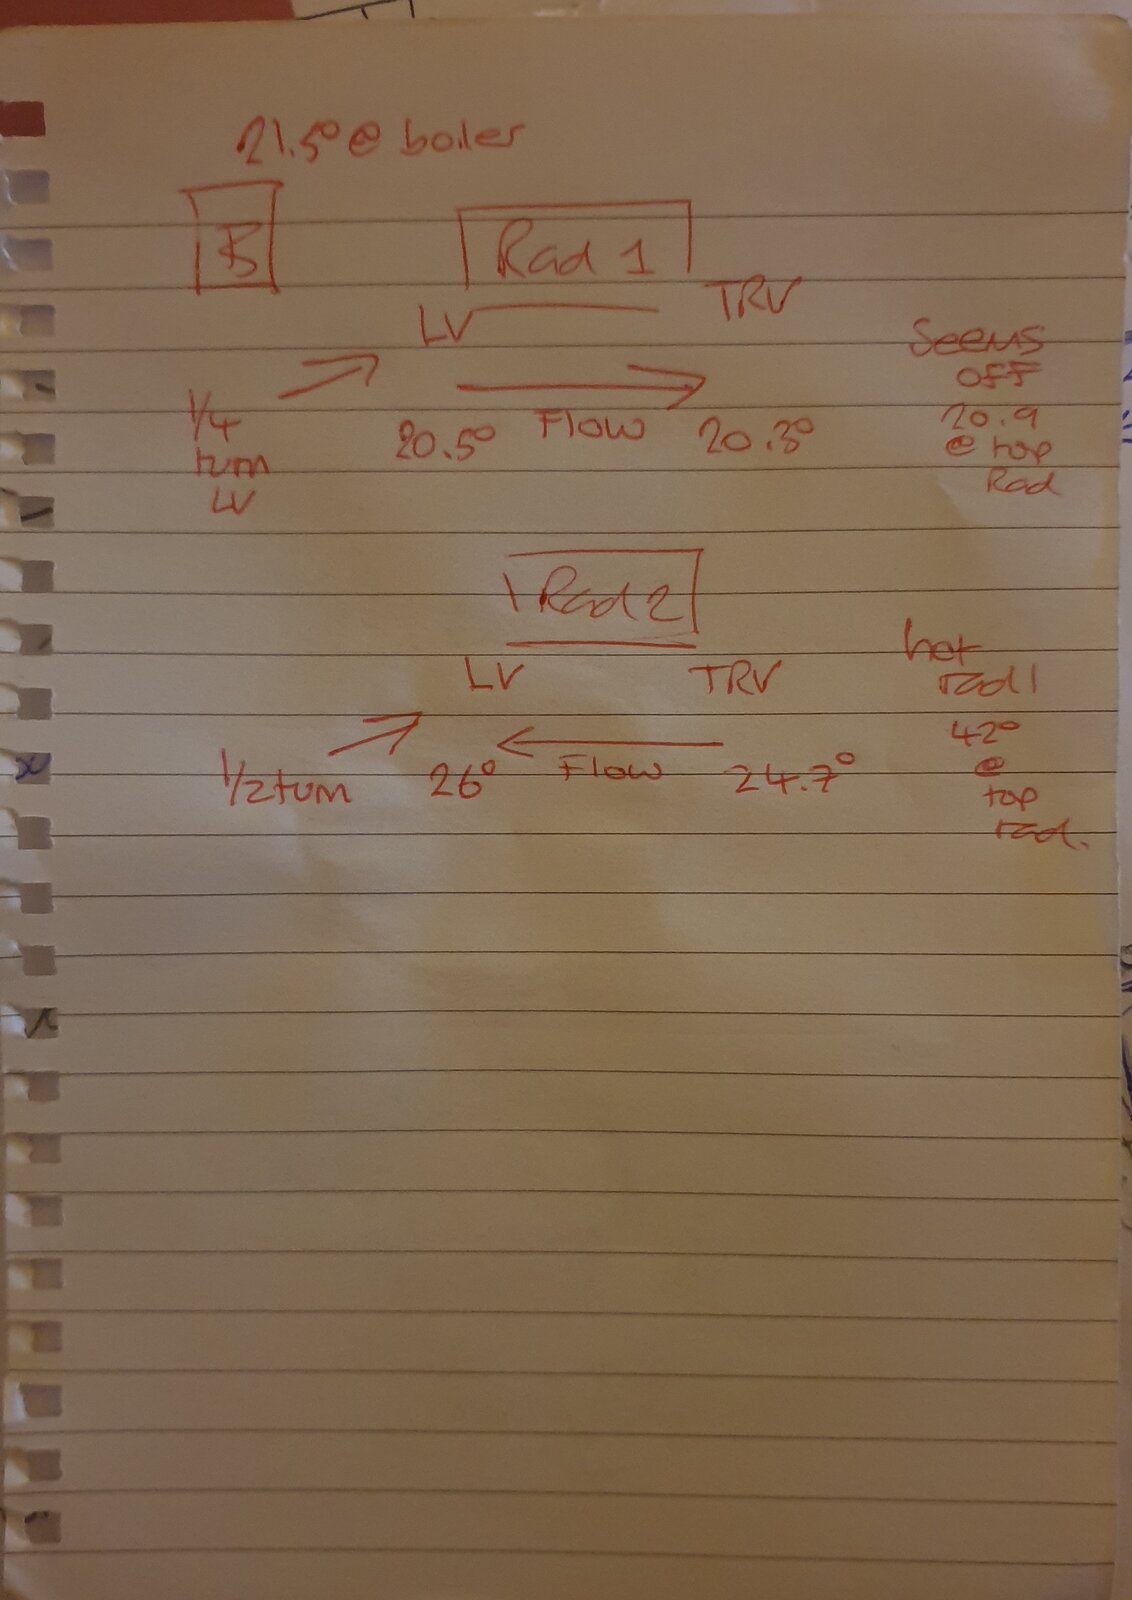 21.5° @ boiler
B
Rad 1
LV
TRV
1/4
turn
LV
20.5°
Flow
20.3°
Seems
off
20.9
@ top
Rad
Rad 2
LV
TRV
1/2 turn
26°
Flow
24.7°
hot
rad!
42°
@
top
rad.